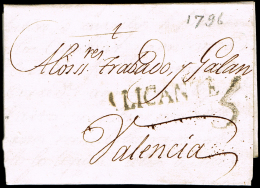 1796
A los S.res Trabado, y Galan
ALICANTE
5
Valencia